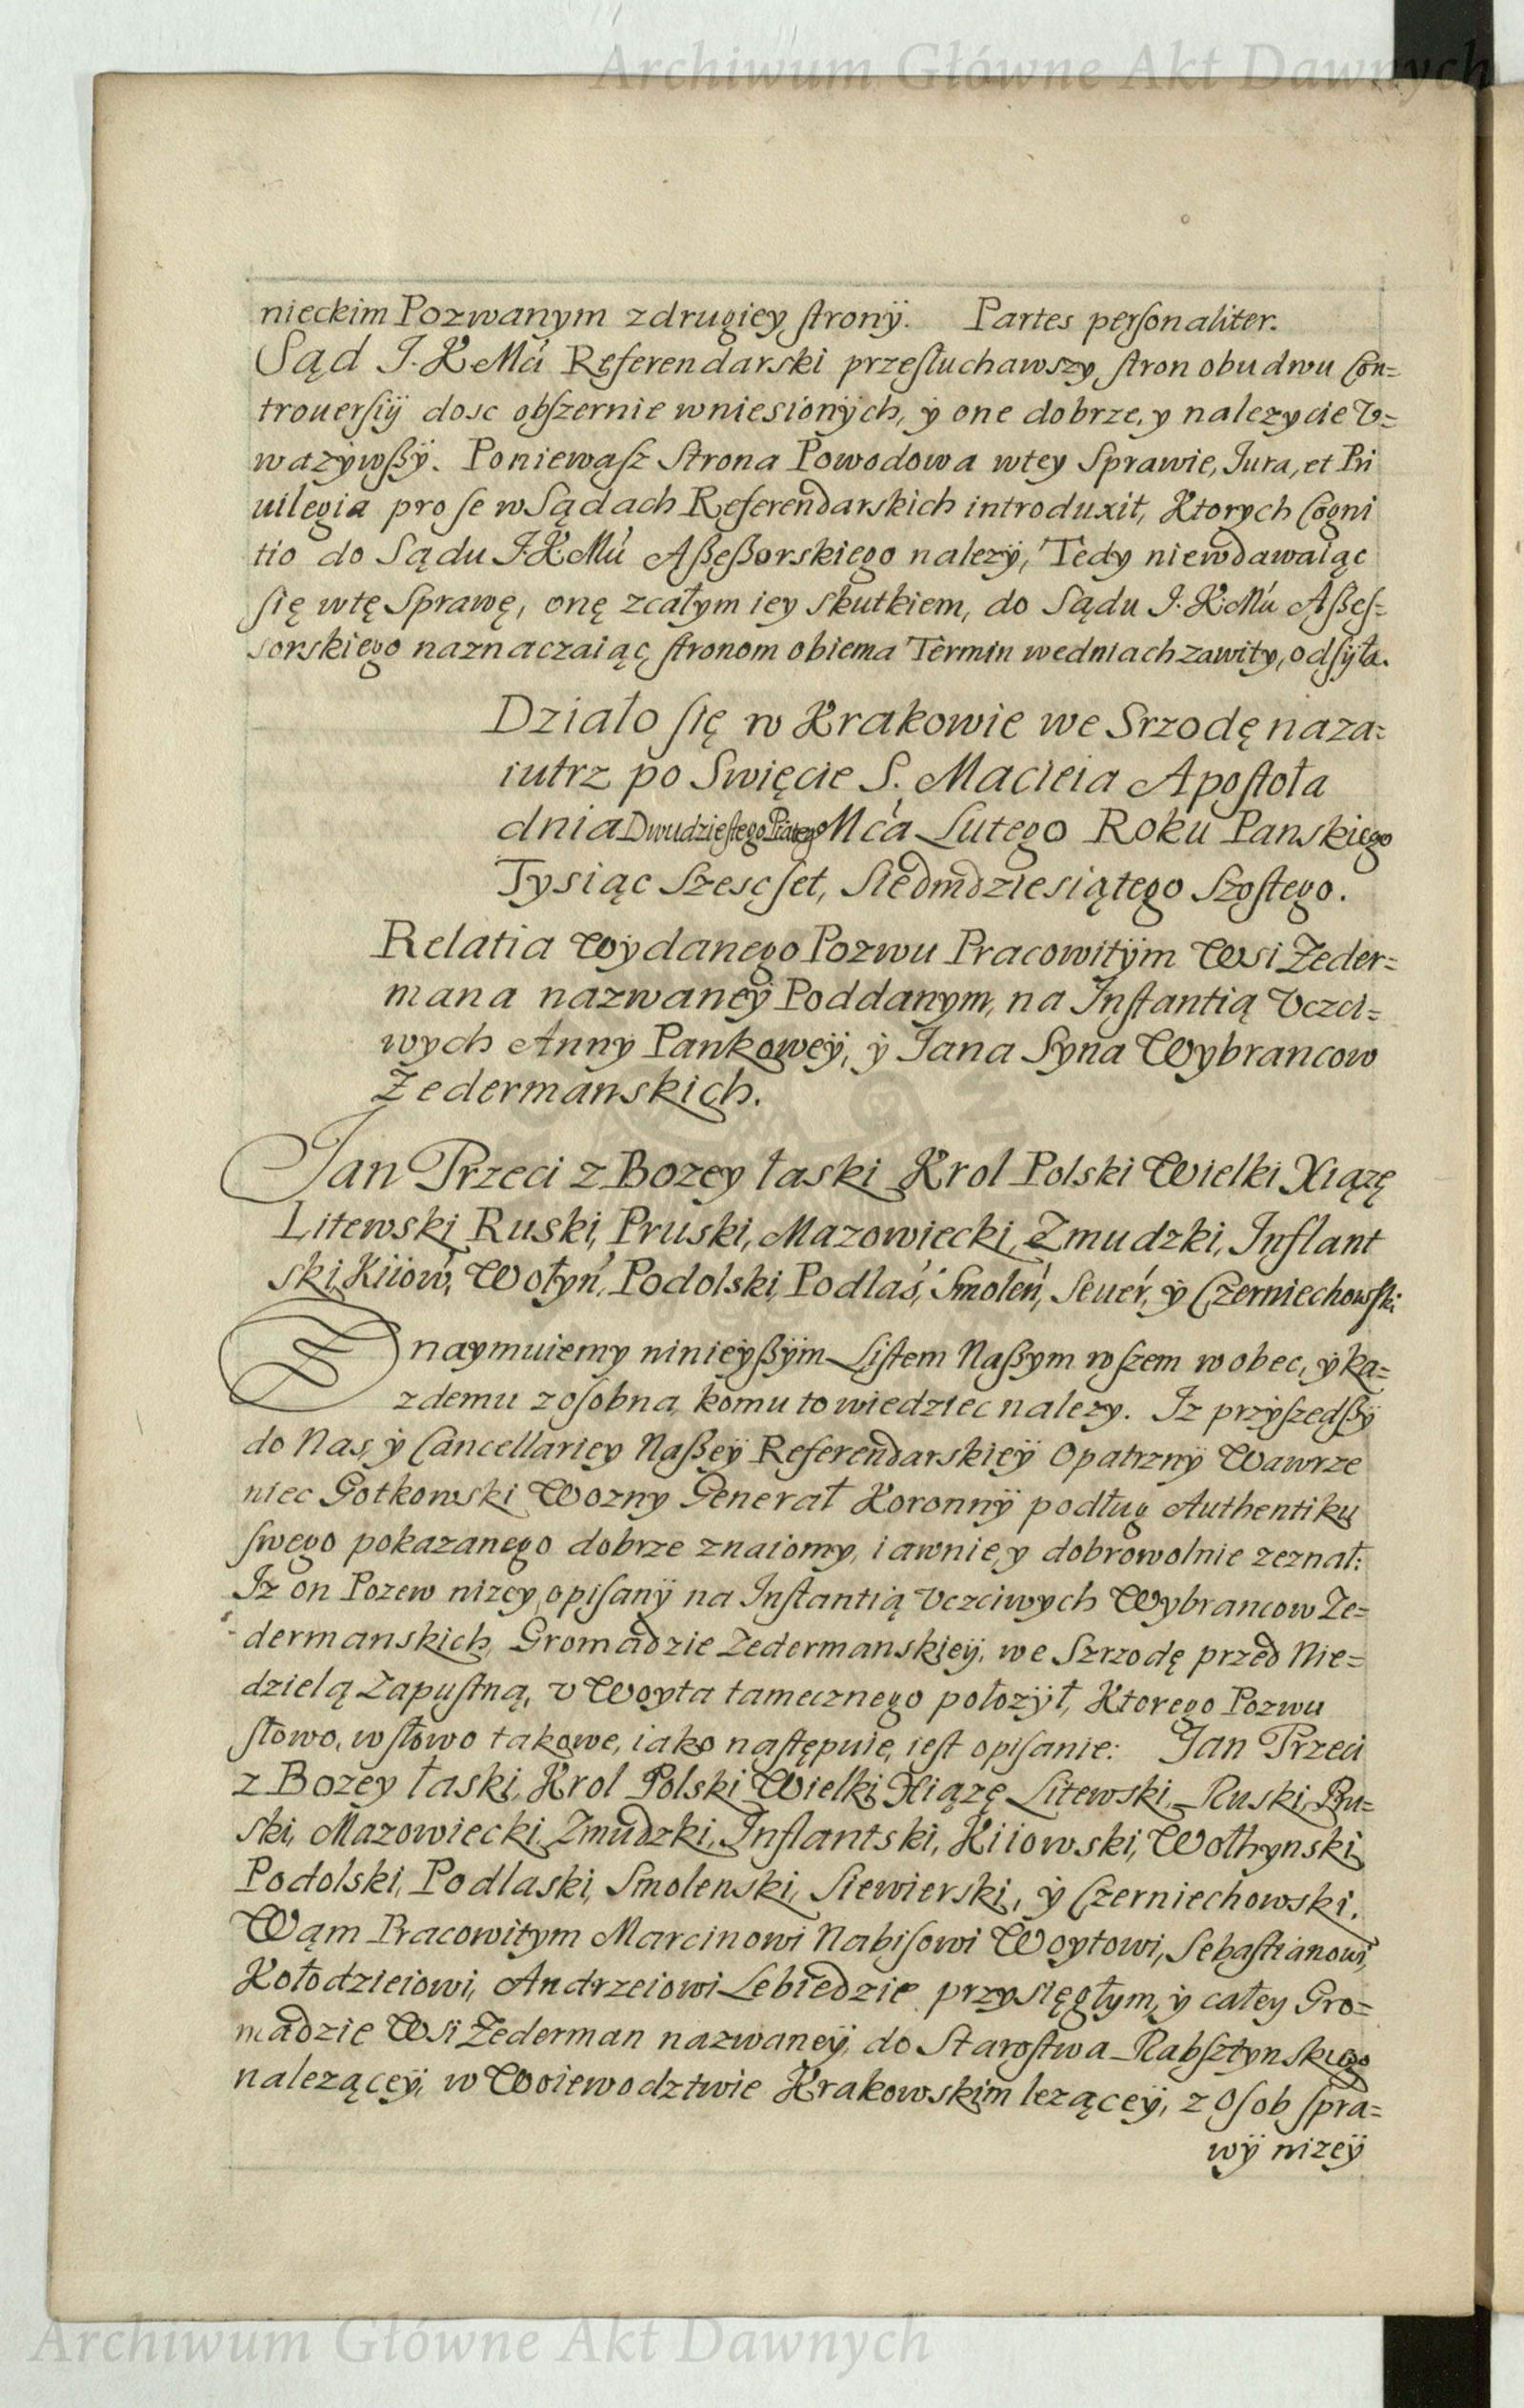 Archiwum Główne Akt Dawnych
nieckim Pozwanym z drugiey ſtronÿ. Partes perſonaliter.
Sąd J. K Mći Referendarski przeſluchawszy ſtron obudwu Con=
trouerſiÿ dosc obſzernie wniesionÿch, ÿ one dobrze, y nalezycie V=
wazÿwßÿ. Poniewaſz Strona Powodowa wtey Sprawie, Jura, et Pri
uilegia pro ſe w Sądach Referendarskich introduxit, Ktorych Cogni
tio do Sądu J. K Mći Aßeßorskiego nalezÿ, Tedy niewdawaiąc
ſię wtę Sprawę, onę zcałym iey skutkiem, do Sądu J. K. Mći Aßeſ=
sorskiego naznaczaiąc ſtronom obiema Termin wedniach zawity, odſÿła.
Działo ſię w Krakowie we Srzodę naza=
iutrz po Swięcie S. Macieia Apoſtoła
dnia Dwudzieſtego Piątego Mca Lutego Roku Panskiego
Tysiąc Szescſet, Siedmdziesiątego Szoſtego.
Relatia Wÿdanego Pozwu Pracowitÿm Wsi Zeder=
mana nazwaneÿ Poddanym, na Inſtantią Vczci=
wych Anny Pankoweÿ, ÿ Jana Syna Wybrancow
Zedermanskich.
Jan Trzeci z Bozey łaski Krol Polski Wielki Xiązę
Litewski Ruski, Pruski, Mazowiecki, Zmudzki, Inflant
ski, Kiiow, Wołyń, Podolski, Podlaś, Smoleń, Seuer, ÿ Czerniechowſki
Znaymuiemy ninieyßÿm Liſtem Naßym wſzem wobec, ÿ ka=
zdemu z oſobna, komu to wiedziec nalezy. Iz przÿſzedßÿ
do Nas, ÿ Cancellariey Naßeÿ Referendarskieÿ Opatrznÿ Wawrze
niec Gotkowski Wozny Generał Koronnÿ podług Authentiku
ſwego pokazanego dobrze znaiomy, iawnie, y dobrowolnie zeznał:
Iz on Pozew nizey opiſanÿ na Inſtantią Vczciwych Wybrancow Ze=
dermanskich, Gromadzie Zedermanskieÿ, we Szrzodę przed Nie=
dzielą Zapuſtną, v Woyta tamecznego położÿł, Ktorego Pozwu
ſłowo, w ſłowo takowe, iako naſtępuie, ieſt opiſanie: Jan Trzeci
z Bozey łaski, Krol Polski Wielki Xiązę Litewski, Ruski, Pru=
ski, Mazowiecki, Zmudzki, Inflantski, Kiiowski, Wołhynski
Podolski, Podlaski, Smolenski, Siewierski, ÿ Czerniechowski.
Wąm Pracowitym Marcinowi Nabiſowi Woytowi, Sebaſtianowi,
Kołodzieiowi, Andrzeiowi Lebiedzie przysięgłym, ÿ całey Gro=
madzie Wsi Zederman nazwaneÿ, do Staroſtwa Rabſztynskiego
nalezącеÿ, w Woiewodztwie Krakowskim lezącеÿ, z Oſob ſpra=
wÿ nizeÿ
Archiwum Główne Akt Dawnych